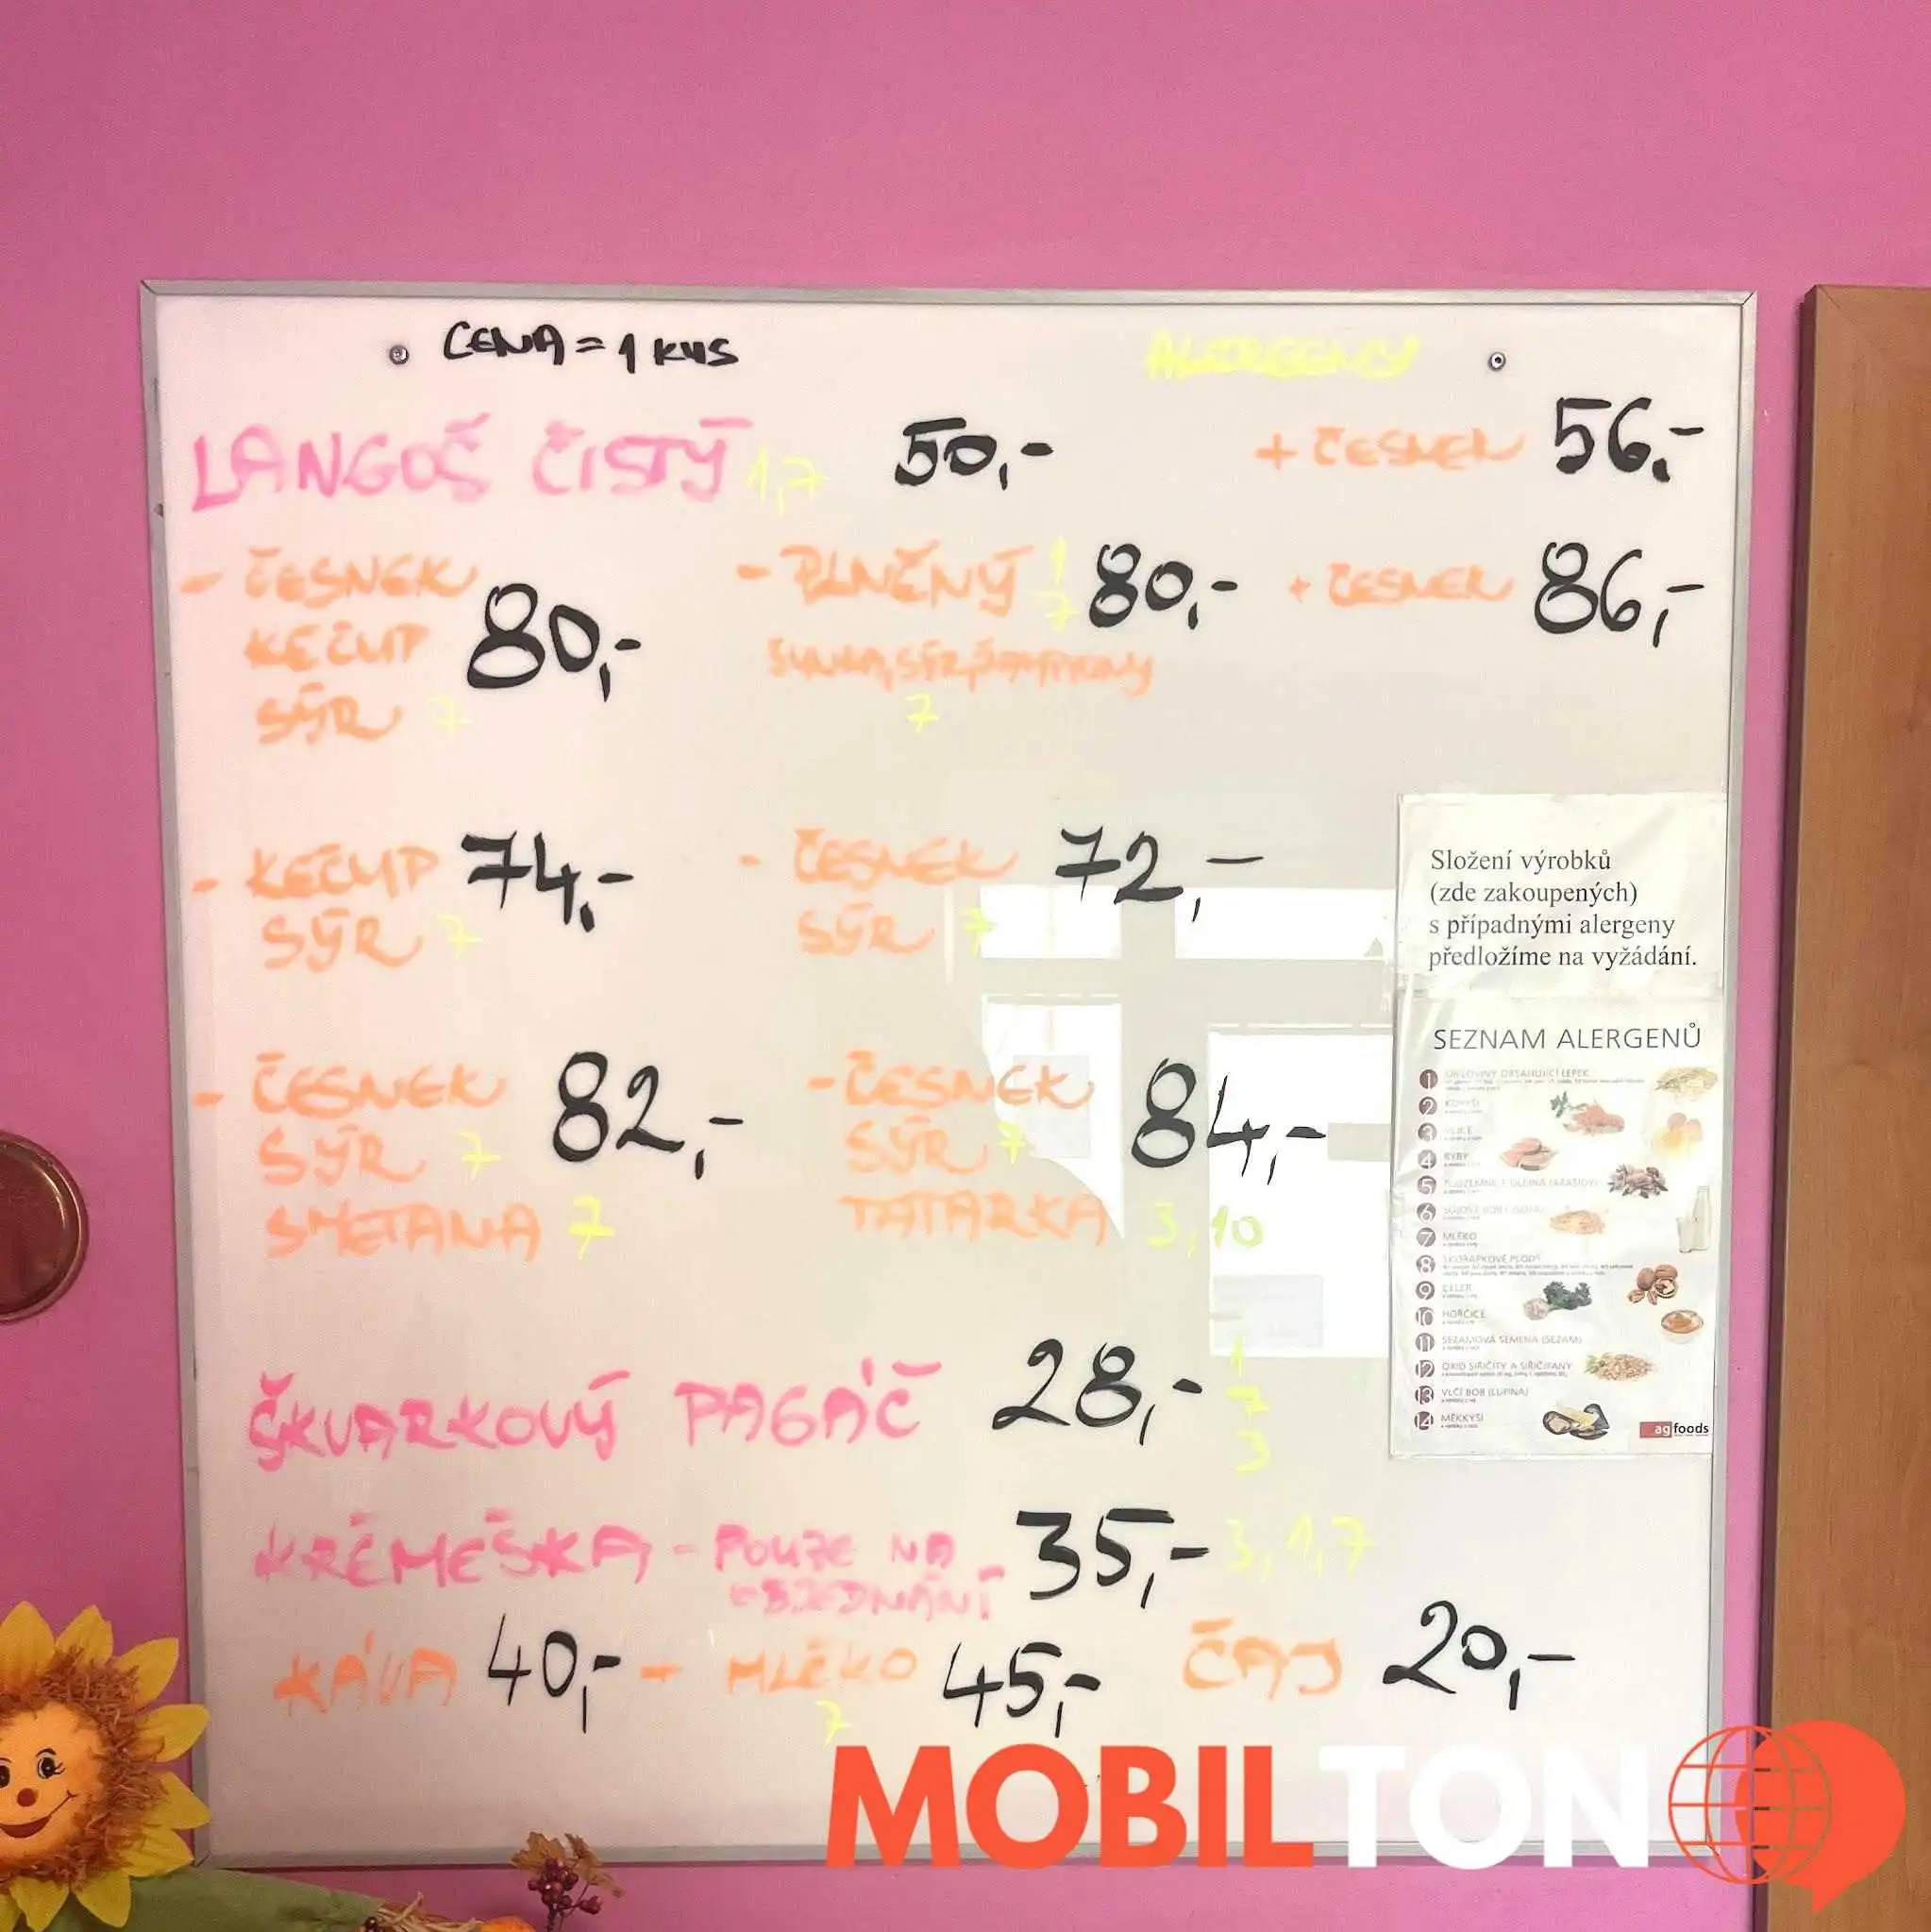 CENA = 1 KUS
ALERGENY
LANGOŠ ČISTÝ 1,7 50,-
+ ČESNEK 56,-
- ČESNEK
KEČUP
SÝR 7
80,-
- PLNĚNÝ 1 7 80,- + ČESNEK 86,-
ŠUNKA, SÝR, ŠAMPIONY
7
- KEČUP 74,-
SÝR 7
- ČESNEK 72,-
SÝR 7
- ČESNEK 82,-
SÝR 7
SMETANA 7
- ČESNEK 84,-
SÝR 7
TATARKA 3,10
ŠKVARKOVÝ PAGÁČ 28,- 1
7
3
KRÉMEŠKA - POUZE NA
OBJEDNÁNÍ - 35,- 3,1,7
KÁVA 40,- - MLÉKO 45,- ČAJ 20,-
7
Složení výrobků
(zde zakoupených)
s případnými alergeny
předložíme na vyžádání.
SEZNAM ALERGENŮ
1 OBILOVINY OBSAHUJÍCÍ LEPEK
2 KORÝŠI
3 VEJCE
4 RYBY
5
6
7 MLÉKO
8 SKOŘÁPKOVÉ PLODY
9 CELER
10 HOŘČICE
11 SEZAMOVÁ SEMENA (SEZAM)
12 OXID SIŘIČITÝ A SIŘIČITANY
13 VLČÍ BOB (LUPINA)
14 MĚKKÝŠI
ag foods
MOBILTON